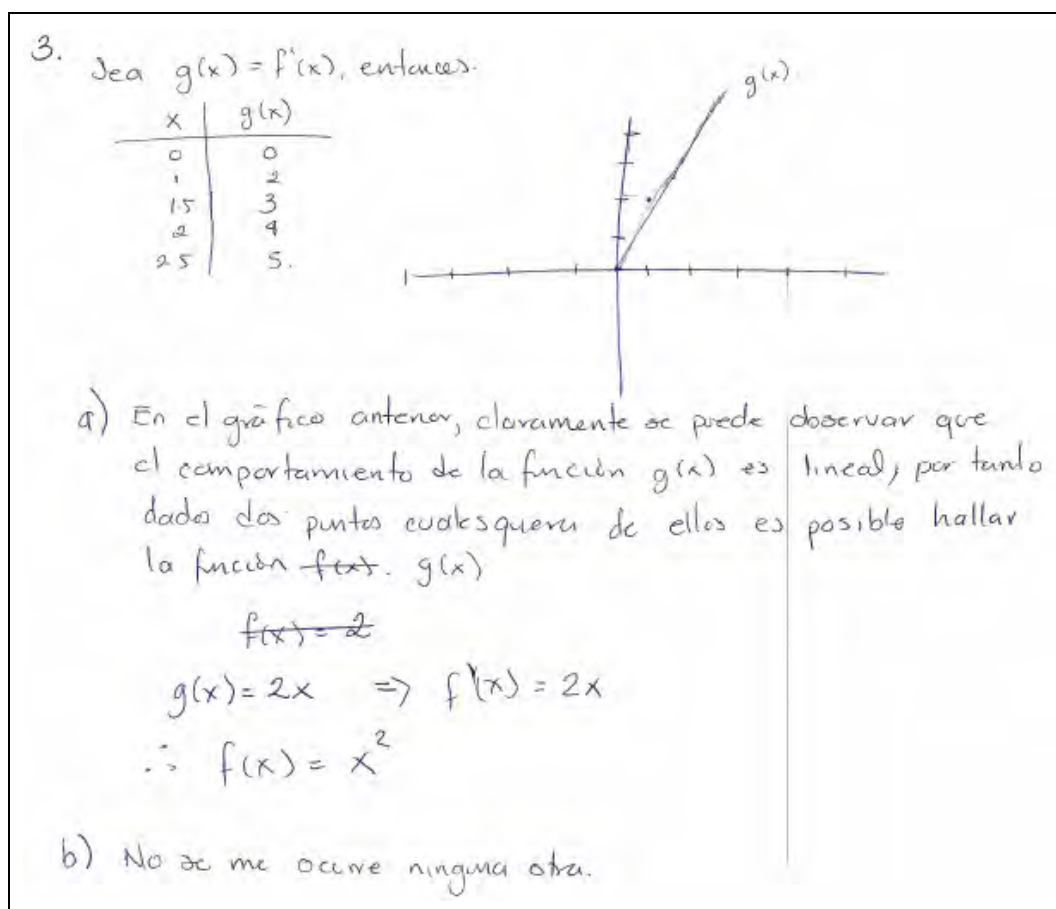 3. Sea g(x) = f'(x), entonces.
x | g(x)
0 | 0
1 | 2
1.5 | 3
2 | 4
2 5 | 5.
g(x)
a) En el gráfico anterior, claramente se puede observar que
el comportamiento de la función g(x) es lineal, por tanto
dados dos puntos cualesquera de ellos es posible hallar
la función f(x). g(x)
f(x) = 2
g(x) = 2x ⇒ f'(x) = 2x
∴ f(x) = x²
b) No se me ocurre ninguna otra.